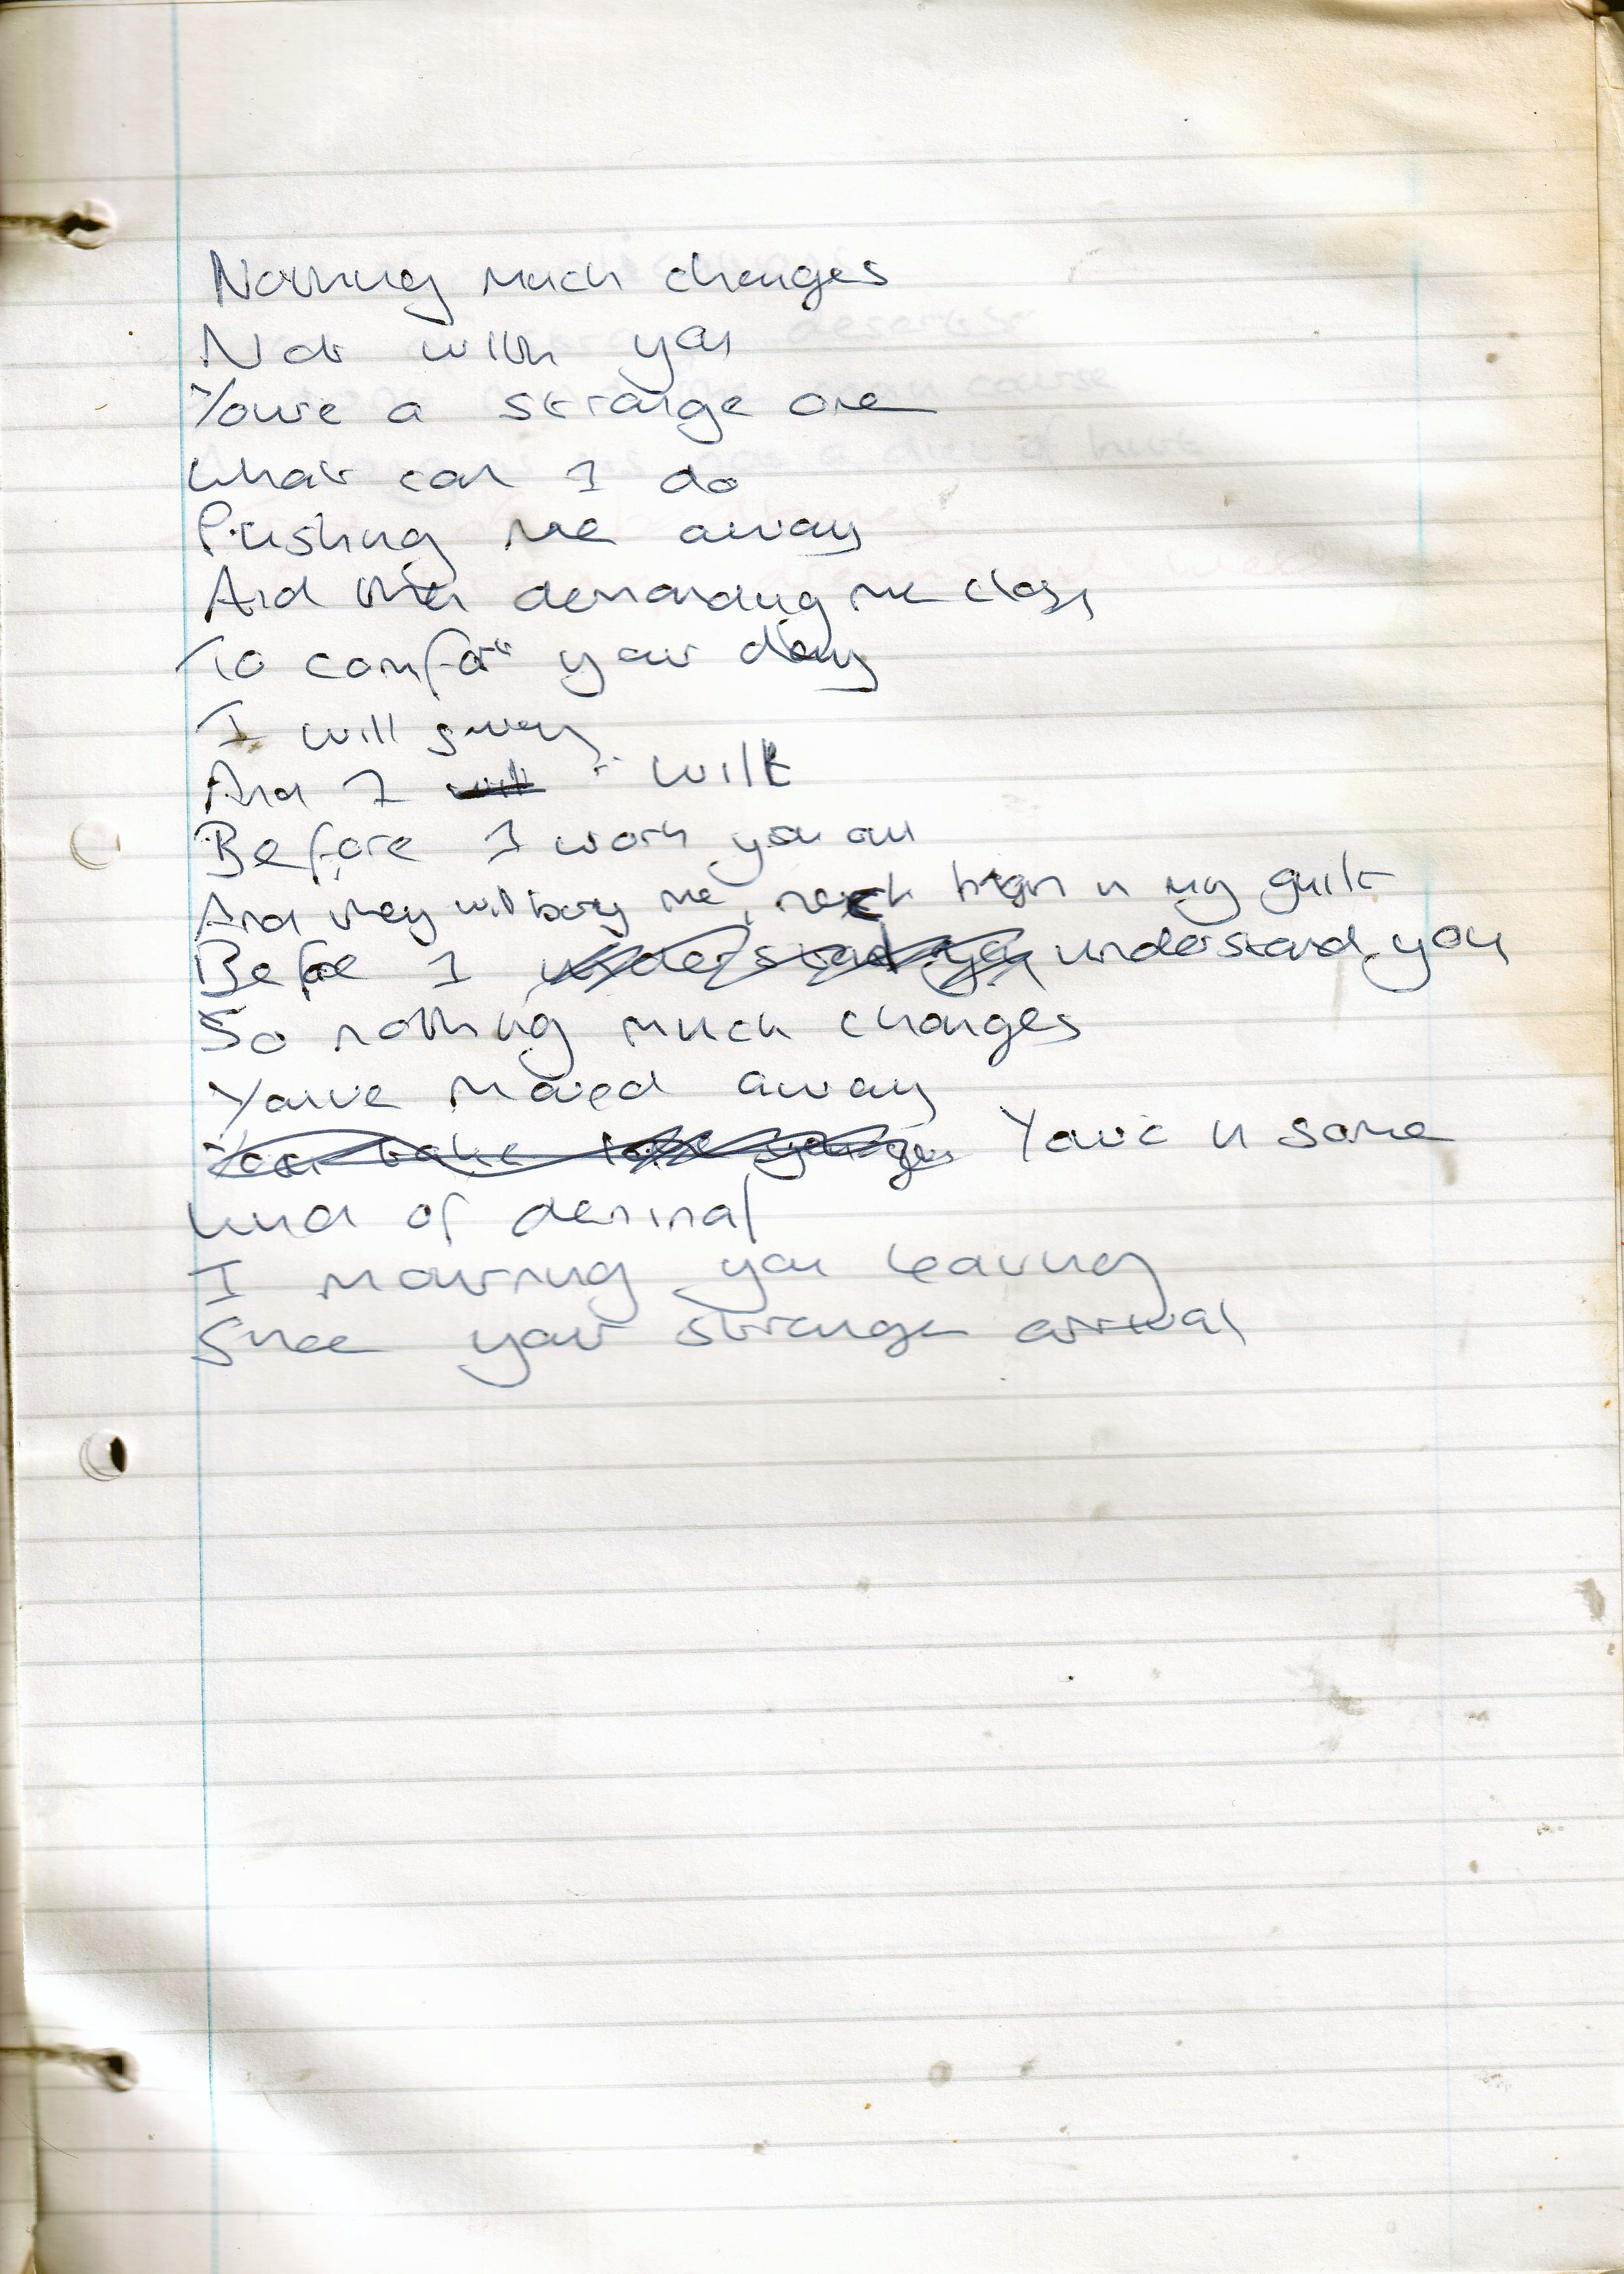 Nothing much changes
Not with you
Youre a strange one
What can I do
Pushing me away
And then demanding me close
To comfort your day
I will
And I will wilt
Before I work you out
And they will bury me, neck high in my guilt
Before I understand you understand you
So nothing much changes
Youve moved away
You take Youre in some
kind of deninal
I mourning you leaving
Since your strange arrival